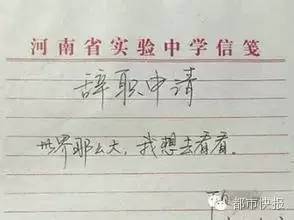 河南省实验中学信笺
辞职申请
世界那么大，我想去看看。
都市快报